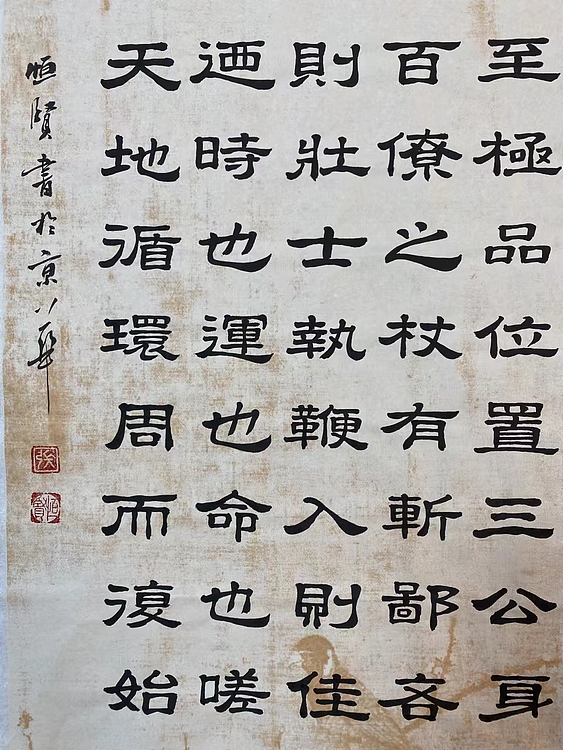 至極品位置三公身
百僚之杖有斬鄙吝
則壯士執鞭入則佳
迺時也運也命也嗟
天地循環周而復始
恒賢書於京華
張
恒賢